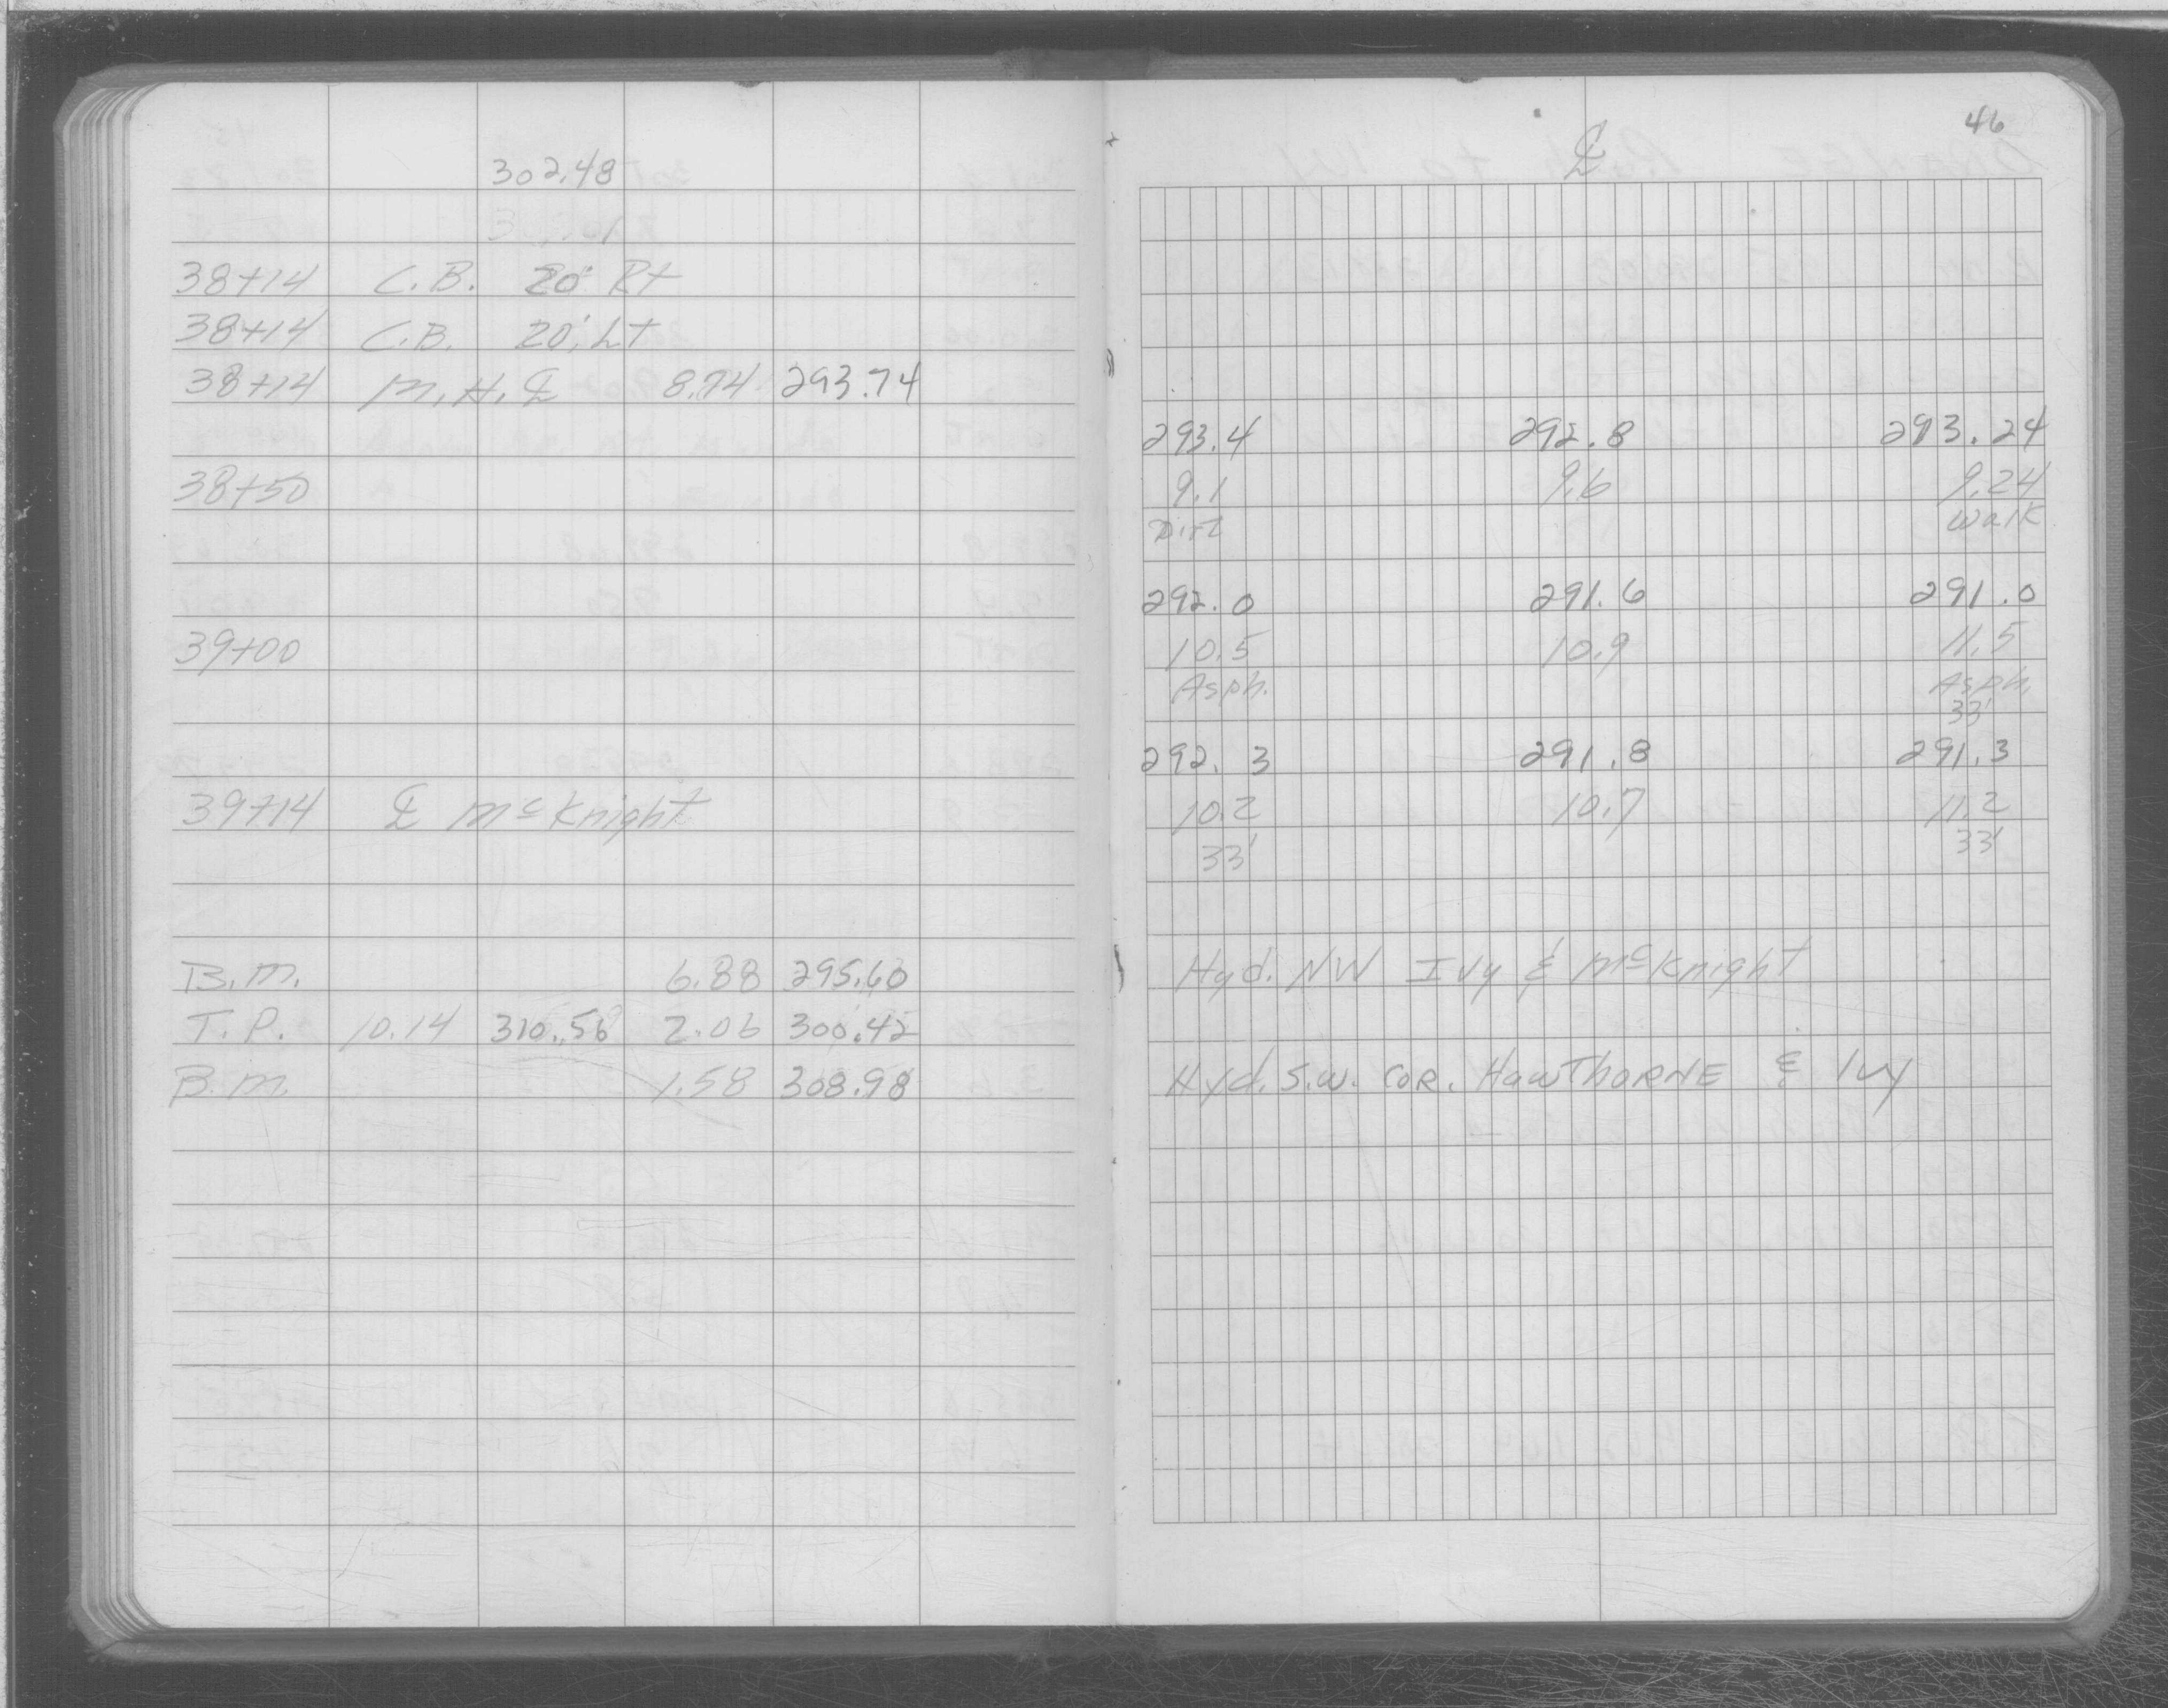 302.48
38+14 C.B. 20' Rt
38+14 C.B. 20' Lt
38+14 M.H. ℄ 8.74 293.74
38+50
39+00
39+14 ℄ McKnight
B.M. 6.88 295.60
T.P. 10.14 310.56 2.06 300.42
B.M. 1.58 308.98
46
℄
293.4 292.8 293.24
9.1 9.6 9.24
Dirt Walk
292.0 291.6 291.0
10.5 10.9 11.5
Asph. Asph.
33'
292.3 291.8 291.3
10.2 10.7 11.2
33' 33'
Hyd. NW Ivy & McKnight
Hyd. S.W. COR. HAWTHORNE & Ivy